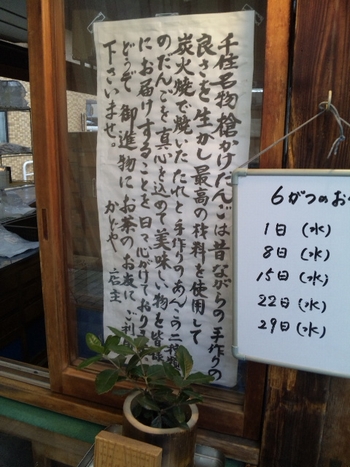 千住名物槍かけだんごは昔ながらの手作りの
良さを生かし最高の材料を使用して
炭火焼で焼いたたれと手作りのあんこの二種類
のだんごを真心を込めて美味しい物を皆様
にお届けすることを日々心がけており
どうぞ御進物にお茶のお友にご利
下さいませ。 かどや 店主
6がつのお
1日(水)
8日(水)
15日(水)
22日(水)
29日(水)